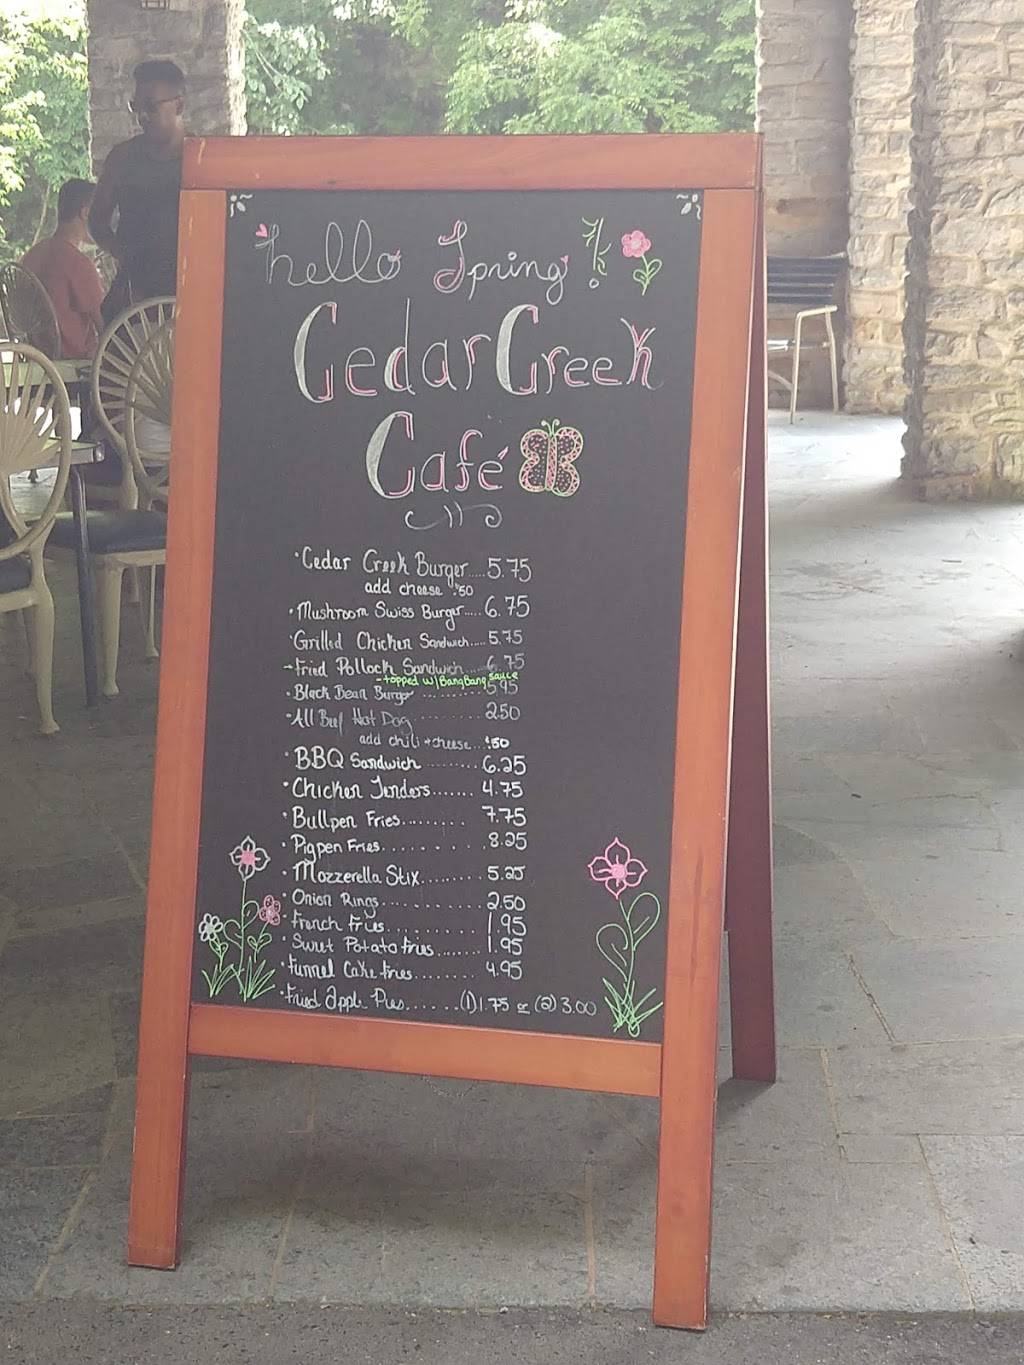 hello Spring!
Cedar Creek
Café
·Cedar Creek Burger.....5.75
add cheese .50
·Mushroom Swiss Burger.....6.75
·Grilled Chicken Sandwich.....5.75
-Fried Pollock Sandwich.....6.75
-topped w/BangBang sauce
·Black Bean Burger.........5.95
·All Beef Hot Dog........2.50
add chili + cheese...$.50
·BBQ Sandwich........6.25
·Chicken Tenders.......4.75
·Bullpen Fries.........7.75
·Pigpen Fries..........8.25
·Mozzerella Stix........5.25
·Onion Rings...........2.50
·French Fries..........1.95
·Sweet Potato Fries.......1.95
·Funnel Cake Fries........4.95
·Fried Apple Pies......(1)1.75 or (2)3.00